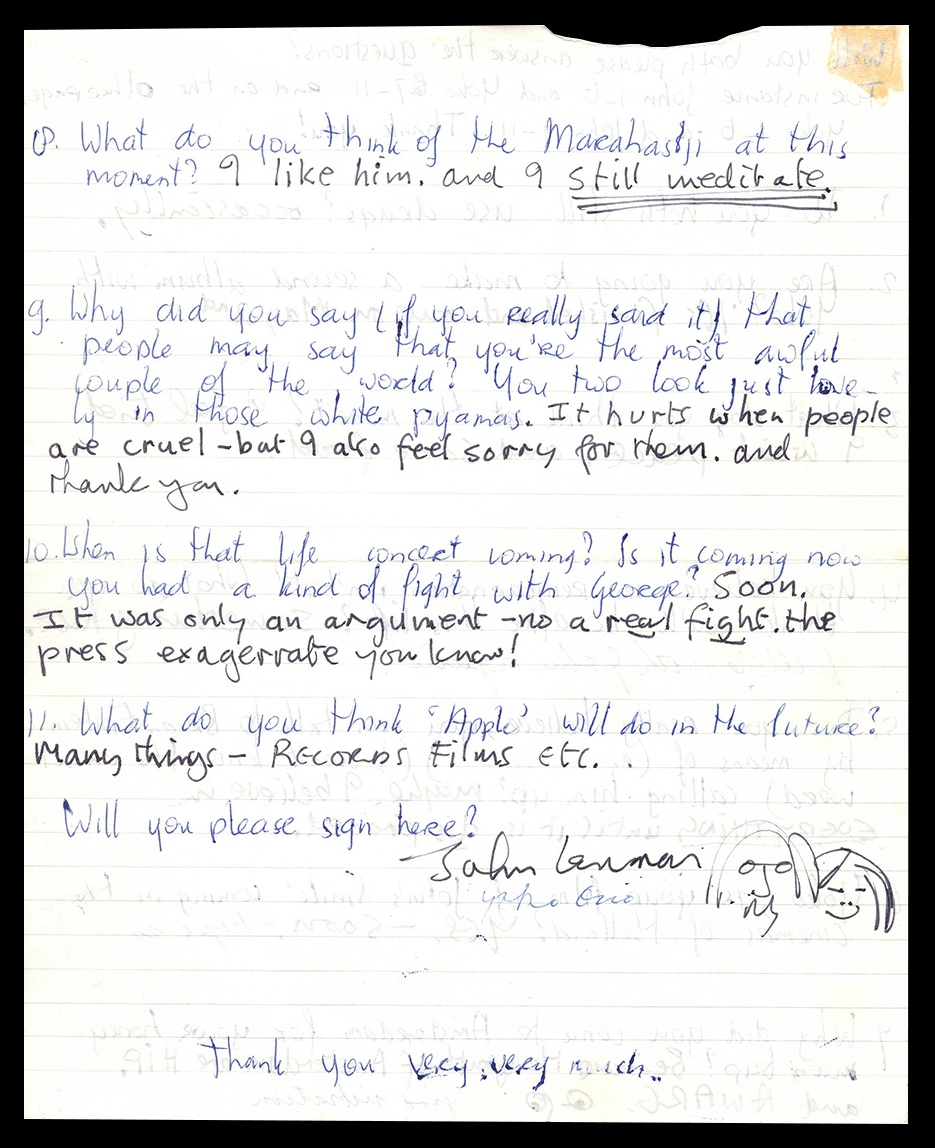 8. What do you think of the Marahashji at this
moment? I like him. and I still meditate.
9. Why did you say (if you really said it) that
people may say that you're the most awful
couple of the world? You two look just love-
ly in those white pyamas. It hurts when people
are cruel - but I also feel sorry for them. and
thank you.
10. When is that life concert coming? Is it coming now
you had a kind of fight with George? Soon.
It was only an argument - no a real fight. the
press exagerrate you know!
11. What do you think 'Apple' will do in the future?
Many things - Records Films Etc.
Will you please sign here?
John Lennon
Yoko Ono
Thank you very, very much..